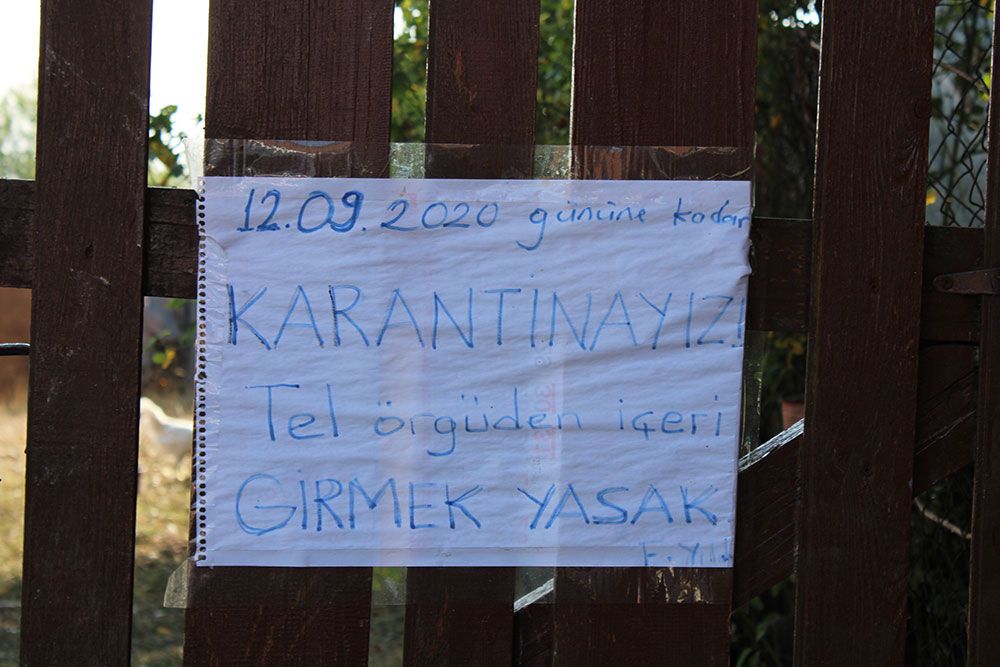 12.09.2020 gününe kadar
KARANTİNAYIZ!
Tel örgüden içeri
GİRMEK YASAK.